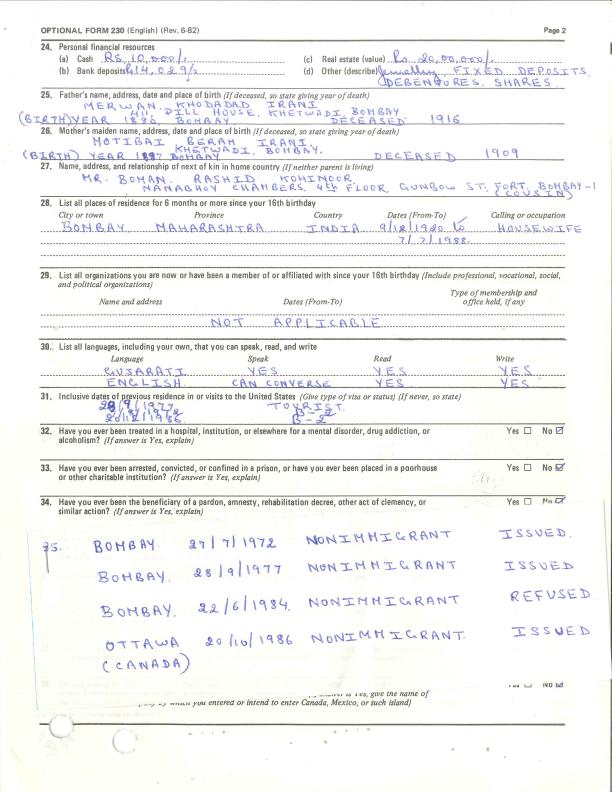 OPTIONAL FORM 230 (English) (Rev. 6-82) Page 2
24. Personal financial resources
(a) Cash RS. 10,000/. (c) Real estate (value) Rs. 20,00,000/.
(b) Bank deposits 14,029/- (d) Other (describe) Jewellery FIXED DEPOSITS,
DEBENTURES. SHARES.
25. Father's name, address, date and place of birth (If deceased, so state giving year of death)
MERWAN. KHODADAD IRANI
411, DILL HOUSE, KHETWADI, BOMBAY
(BIRTH) YEAR BOMBAY DECEASED 1916
26. Mother's maiden name, address, date and place of birth (If deceased, so state giving year of death)
MOTIBAI BERAM IRANI.
KHETWADI. BOMBAY.
(BIRTH) YEAR BOMBAY DECEASED 1909
27. Name, address, and relationship of next of kin in home country (If neither parent is living)
MR. BOMAN. RASHID KOHINOOR
NANABHOY CHAMBERS, 4th FLOOR, GUNBOW ST. FORT, BOMBAY-1
(COUSIN)
28. List all places of residence for 6 months or more since your 16th birthday
City or town Province Country Dates (From-To) Calling or occupation
BOMBAY MAHARASHTRA INDIA 9/12/1920 to HOUSEWIFE
7/7/1988.
29. List all organizations you are now or have been a member of or affiliated with since your 16th birthday (Include professional, vocational, social,
and political organizations)
Name and address Dates (From-To) Type of membership and
office held, if any
NOT APPLICABLE
30. List all languages, including your own, that you can speak, read, and write
Language Speak Read Write
GUJARATI YES YES YES
ENGLISH. CAN CONVERSE YES YES
31. Inclusive dates of previous residence in or visits to the United States (Give type of visa or status) (If never, so state)
28/9/1977 TOURIST.
B-2
20/12/1986 B-2
32. Have you ever been treated in a hospital, institution, or elsewhere for a mental disorder, drug addiction, or Yes ☐ No ☑
alcoholism? (If answer is Yes, explain)
33. Have you ever been arrested, convicted, or confined in a prison, or have you ever been placed in a poorhouse Yes ☐ No ☑
or other charitable institution? (If answer is Yes, explain)
34. Have you ever been the beneficiary of a pardon, amnesty, rehabilitation decree, other act of clemency, or Yes ☐ No ☑
similar action? (If answer is Yes, explain)
35. BOMBAY 27/7/1972 NONIMMIGRANT ISSUED.
BOMBAY. 28/9/1977 NONIMMIGRANT ISSUED
BOMBAY. 22/6/1984. NONIMMIGRANT REFUSED
OTTAWA 20/10/1986 NONIMMIGRANT. ISSUED
(CANADA)
Yes ☐ No ☑
is Yes, give the name of
by which you entered or intend to enter Canada, Mexico, or such island)